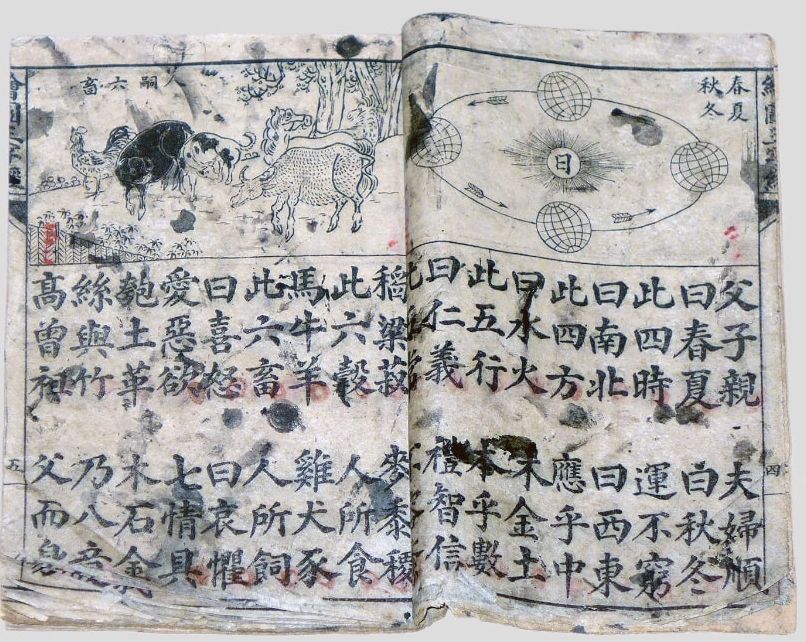 春夏
秋冬
日
四
父子親 夫婦順
曰春夏 曰秋冬
此四時 運不窮
曰南北 曰西東
此四方 應乎中
曰水火 木金土
此五行 本乎數
曰仁義 禮智信
嗣六畜
稻粱菽 麥黍稷
此六穀 人所食
馬牛羊 雞犬豕
此六畜 人所飼
曰喜怒 曰哀懼
愛惡欲 七情具
匏土革 木石金
絲與竹 乃八音
高曾祖 父而身
繪圖三字經
五